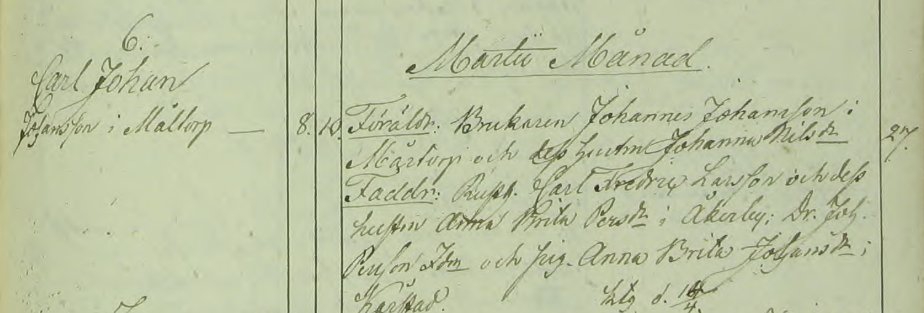 Martii Månad.
6.
Carl Johan
Johansson i Måltorp — 8. 10.
Föräldr: Brukaren Johannes Johansson i
Mårtorp och dess hustru Johanna Nilsdr 27.
Faddr: Carl Fredric Larsson och dess
hustru Anna Brita Persdr i Åkerby; Dr. Joh.
Person och pig. Anna Brita Johansdr i
Karstad. d. 10/4